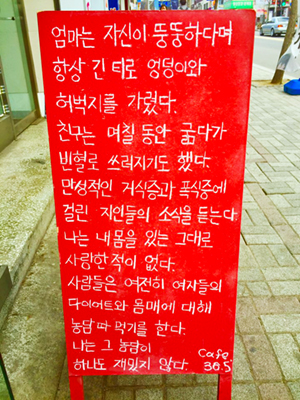 엄마는 자신이 뚱뚱하다며
항상 긴 티로 엉덩이와
허벅지를 가렸다.
친구는 며칠 동안 굶다가
빈혈로 쓰러지기도 했다.
만성적인 거식증과 폭식증에
걸린 지인들의 소식을 듣는다
나는 내 몸을 있는 그대로
사랑한 적이 없다.
사람들은 여전히 여자들의
다이어트와 몸매에 대해
농담 따 먹기를 한다.
나는 그 농담이
하나도 재밌지 않다.
Cafe
36.5